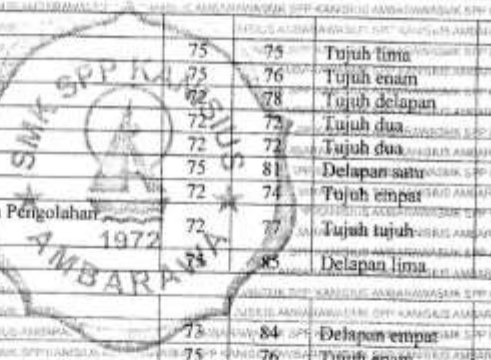 75 75 Tujuh lima
75 76 Tujuh enam
72 78 Tujuh delapan
72 72 Tujuh dua
72 72 Tujuh dua
75 81 Delapan satu
72 74 Tujuh empat
Pengolahan 72 77 Tujuh tujuh
85 Delapan lima
73 84 Delapan empat
75 76 Tujuh enam
SMK SPP KANISIUS
1972
AMBARAWA